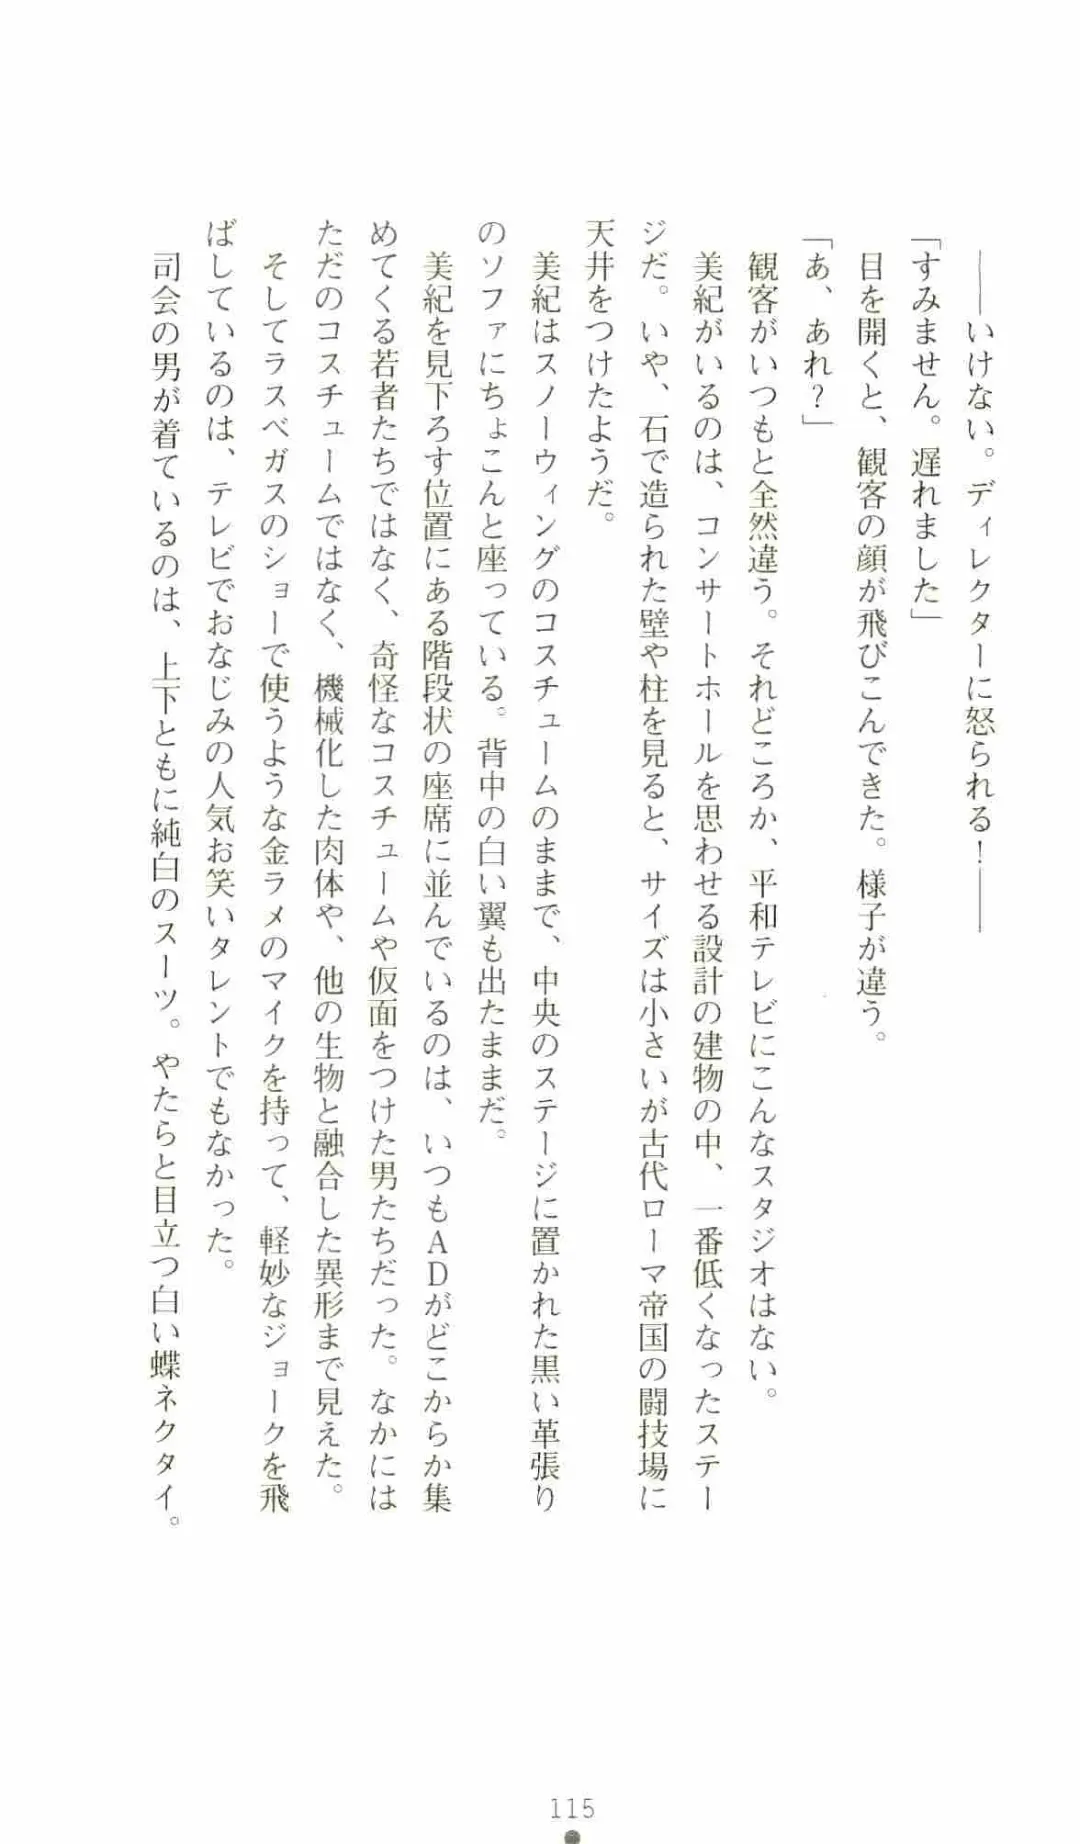 ――いけない。ディレクターに怒られる！――
「すみません。遅れました」
目を開くと、観客の顔が飛びこんできた。様子が違う。
「あ、あれ？」
観客がいつもと全然違う。それどころか、平和テレビにこんなスタジオはない。
美紀がいるのは、コンサートホールを思わせる設計の建物の中、一番低くなったステー
ジだ。いや、石で造られた壁や柱を見ると、サイズは小さいが古代ローマ帝国の闘技場に
天井をつけたようだ。
美紀はスノーウィングのコスチュームのままで、中央のステージに置かれた黒い革張り
のソファにちょこんと座っている。背中の白い翼も出たままだ。
美紀を見下ろす位置にある階段状の座席に並んでいるのは、いつもＡＤがどこからか集
めてくる若者たちではなく、奇怪なコスチュームや仮面をつけた男たちだった。なかには
ただのコスチュームではなく、機械化した肉体や、他の生物と融合した異形まで見えた。
そしてラスベガスのショーで使うような金ラメのマイクを持って、軽妙なジョークを飛
ばしているのは、テレビでおなじみの人気お笑いタレントでもなかった。
司会の男が着ているのは、上下ともに純白のスーツ。やたらと目立つ白い蝶ネクタイ。
115